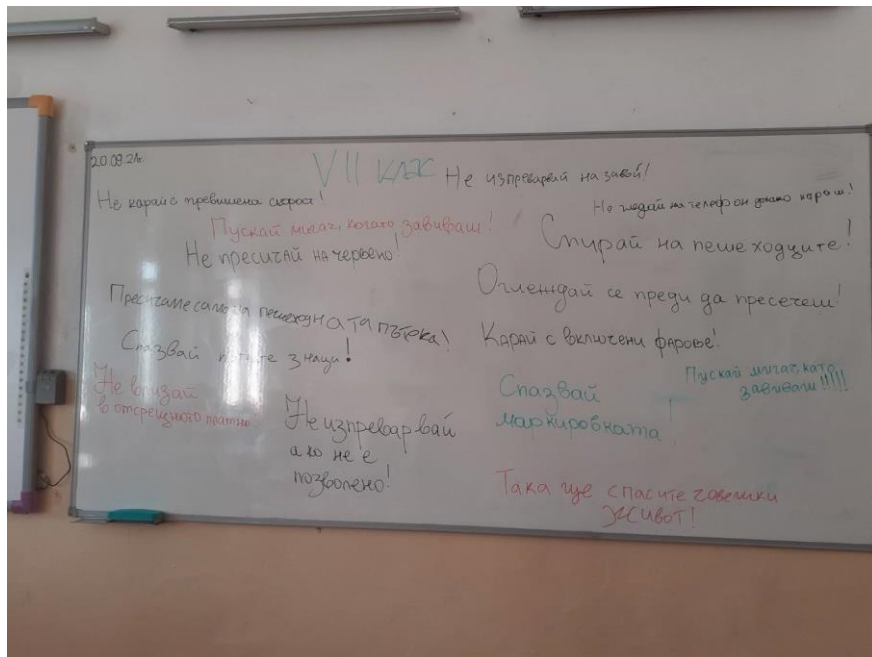 20.09.21г.
VII клас
Не изпреварвай на завой!
Не карай с превишена скорост!
Не гледай на телефон докато караш!
Пускай мигач, когато завиваш!
Спирай на пешеходците!
Не пресичай на червено!
Оглеждай се преди да пресечеш!
Пресичаме само на пешеходната пътека!
Карай с включени фарове!
Спазвай пътните знаци!
Пускай мигач, като
завиваш!!!!!
Не влизай
в отсрещното платно!
Спазвай
маркировката!
Не изпреварвай
ако не е
позволено!
Така ще спасите човешки
живот!